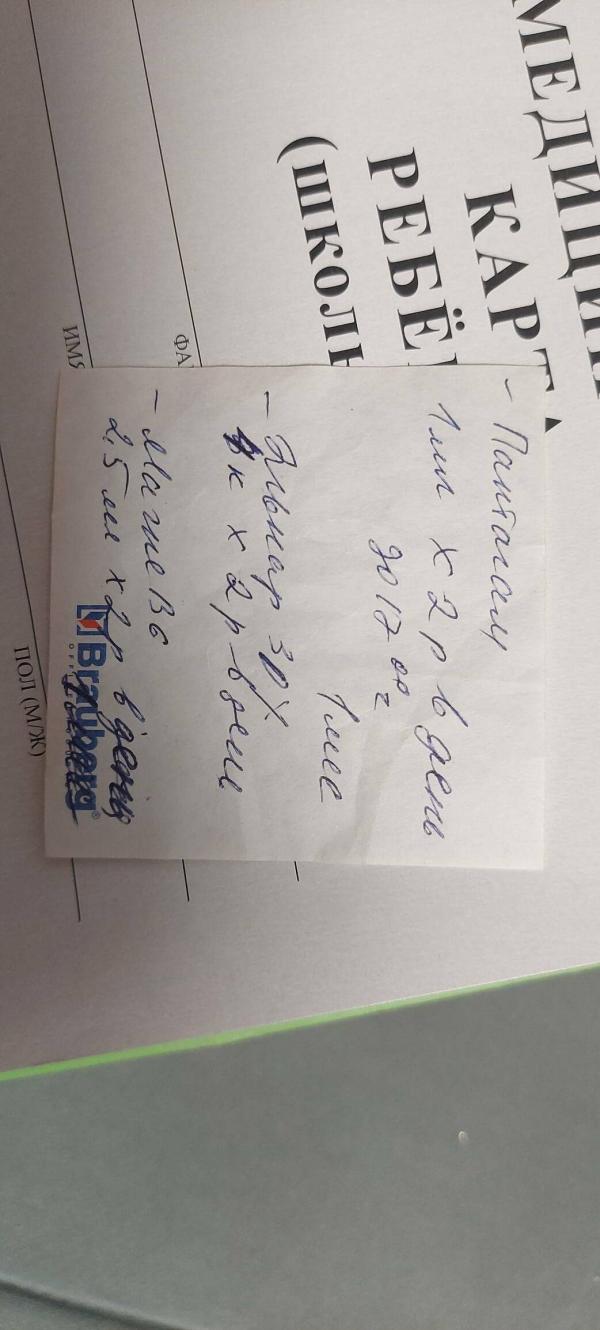 МЕДИЦИН
КАРТА
РЕБЁ
(ШКОЛЬ
ФА
ИМЯ
ПОЛ (М/Ж)
- Пантогам
1 мл х 2 р в день
до 17 00
1 мес
- Элькар 30%
к х 2 р в день
- Магне В6
2,5 мл х 2 р в день
Brauberg®